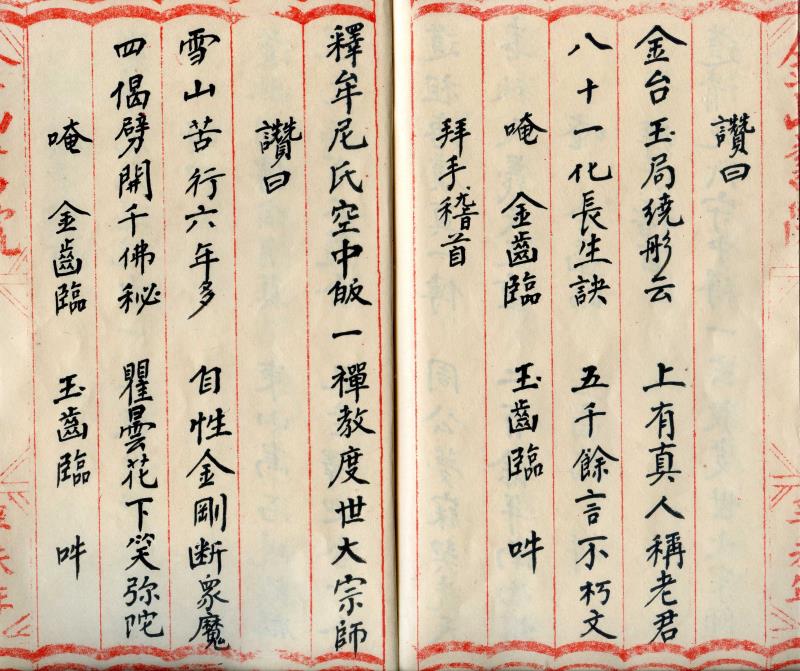 讚曰
金台玉局繞彤云　上有真人稱老君
八十一化長生訣　五千餘言不朽文
唵　金齒臨　玉齒臨　吽
拜手稽首
釋牟尼氏空中皈一禪教度世大宗師
讚曰
雪山苦行六年多　自性金剛断眾魔
四偈劈開千佛秘　瞿曇花下笑弥陀
唵　金齒臨　玉齒臨　吽